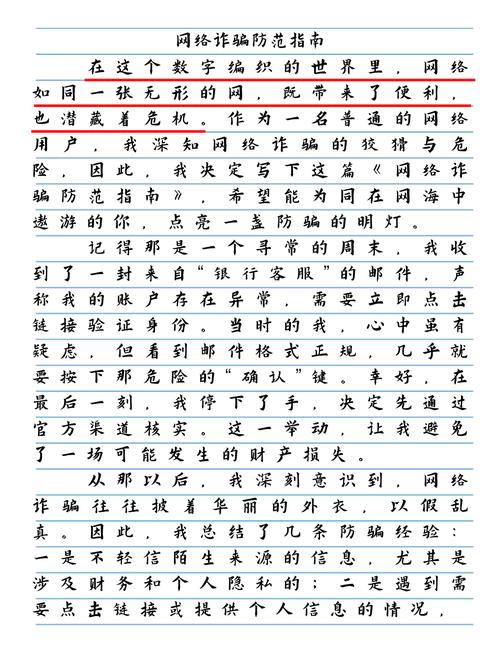 网络诈骗防范指南
在这个数字编织的世界里，网络
如同一张无形的网，既带来了便利，
也潜藏着危机。作为一名普通的网络
用户，我深知网络诈骗的狡猾与危
险，因此，我决定写下这篇《网络诈
骗防范指南》，希望能为同在网海中
遨游的你，点亮一盏防骗的明灯。
记得那是一个寻常的周末，我收
到了一封来自“银行客服”的邮件，声
称我的账户存在异常，需要立即点击
链接验证身份。当时的我，心中虽有
疑虑，但看到邮件格式正规，几乎就
要按下那危险的“确认”键。幸好，在
最后一刻，我停下了手，决定先通过
官方渠道核实。这一举动，让我避免
了一场可能发生的财产损失。
从那以后，我深刻意识到，网络
诈骗往往披着华丽的外衣，以假乱
真。因此，我总结了几条防骗经验：
一是不轻信陌生来源的信息，尤其是
涉及财务和个人隐私的；二是遇到需
要点击链接或提供个人信息的情况，